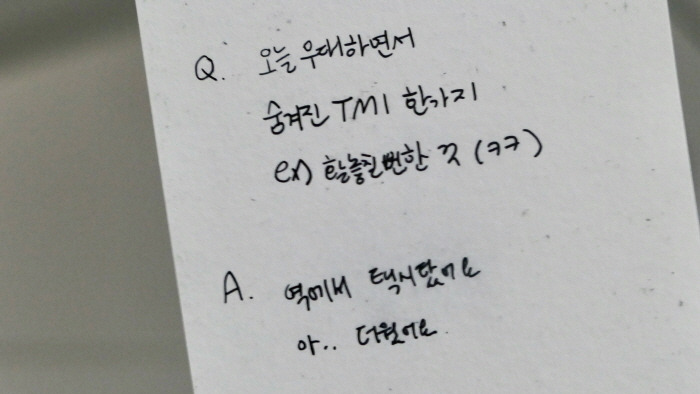 Q. 오늘 우대하면서
숨겨진 TMI 한가지
ex) 활 놓칠뻔한 것 (ㅋㅋ)
A. 역에서 택시탔어요
아.. 더웠어요